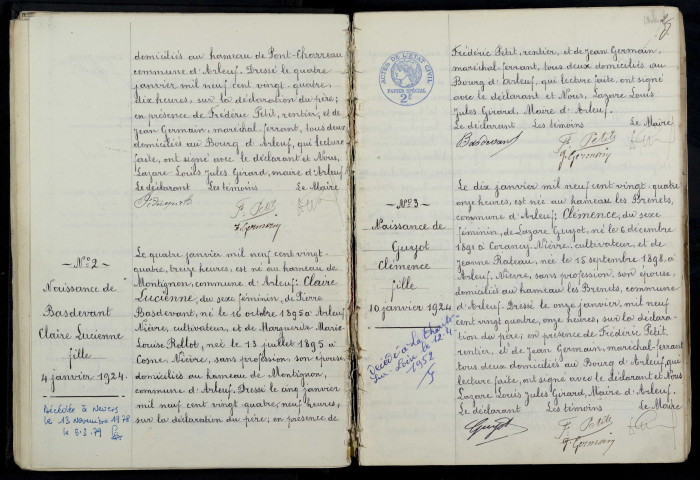 domiciliés au hameau de Pont-Charreau
commune d'Arleuf. Dressé le quatre
janvier mil neuf cent vingt-quatre,
dix heures, sur la déclaration du père;
en présence de Frédéric Petit, rentier, et de
Jean Germain, maréchal-ferrant, tous deux
domiciliés au Bourg d'Arleuf, qui lecture
faite, ont signé avec le déclarant et Nous,
Lazare Louis Jules Girard, maire d'Arleuf.
Le déclarant Les témoins Le Maire
F. Petit
J. Germain
- N° 2 -
Naissance de
Basdevant
Claire Lucienne
fille
4 janvier 1924.
Décédée à Nevers
le 13 Novembre 1978
le 5.3.79
Le quatre janvier mil neuf cent vingt-
quatre, treize heures, est né au hameau de
Montignon, commune d'Arleuf: Claire
Lucienne, du sexe féminin, de Pierre
Basdevant, né le 16 octobre 1895 à Arleuf
Nièvre, cultivateur, et de Marguerite Marie
Louise Rollot, née le 13 juillet 1895 à
Cosne-Nièvre, sans profession, son épouse
domiciliés au hameau de Montignon,
commune d'Arleuf. Dressé le cinq janvier
mil neuf cent vingt quatre, neuf heures,
sur la déclaration du père; en présence de
ACTES DE L'ÉTAT CIVIL
PAPIER SPÉCIAL
2F
Frédéric Petit, rentier, et de Jean Germain,
maréchal-ferrant, tous deux domiciliés au
Bourg d'Arleuf, qui lecture faite, ont signé
avec le déclarant et Nous, Lazare Louis
Jules Girard, Maire d'Arleuf.
Le déclarant Les témoins Le Maire
Basdevant F. Petit
J. Germain
- N° 3 -
Naissance de
Guyot
Clémence
fille
10 janvier 1924
Décédée à la Charité
sur Loire le 12.4
1952
Le dix janvier mil neuf cent vingt-quatre
onze heures, est née au hameau les Brenets,
commune d'Arleuf; Clémence, du sexe
féminin, de Lazare Guyot, né le 6 décembre
1891 à Corancy-Nièvre, cultivateur, et de
Jeanne Rateau, née le 15 septembre 1898 à
Arleuf, Nièvre, sans profession son épouse,
domiciliés au hameau les Brenets, commune
d'Arleuf. Dressé le onze janvier, mil neuf
cent vingt quatre, onze heures, sur la déclara-
tion du père; en présence de Frédéric Petit,
rentier, et de Jean Germain, maréchal-ferrant
tous deux domiciliés au Bourg d'Arleuf, qui
lecture faite, ont signé avec le déclarant et Nous
Lazare Louis Jules Girard, Maire d'Arleuf.
Le déclarant Les témoins Le Maire
Guyot F. Petit
J. Germain